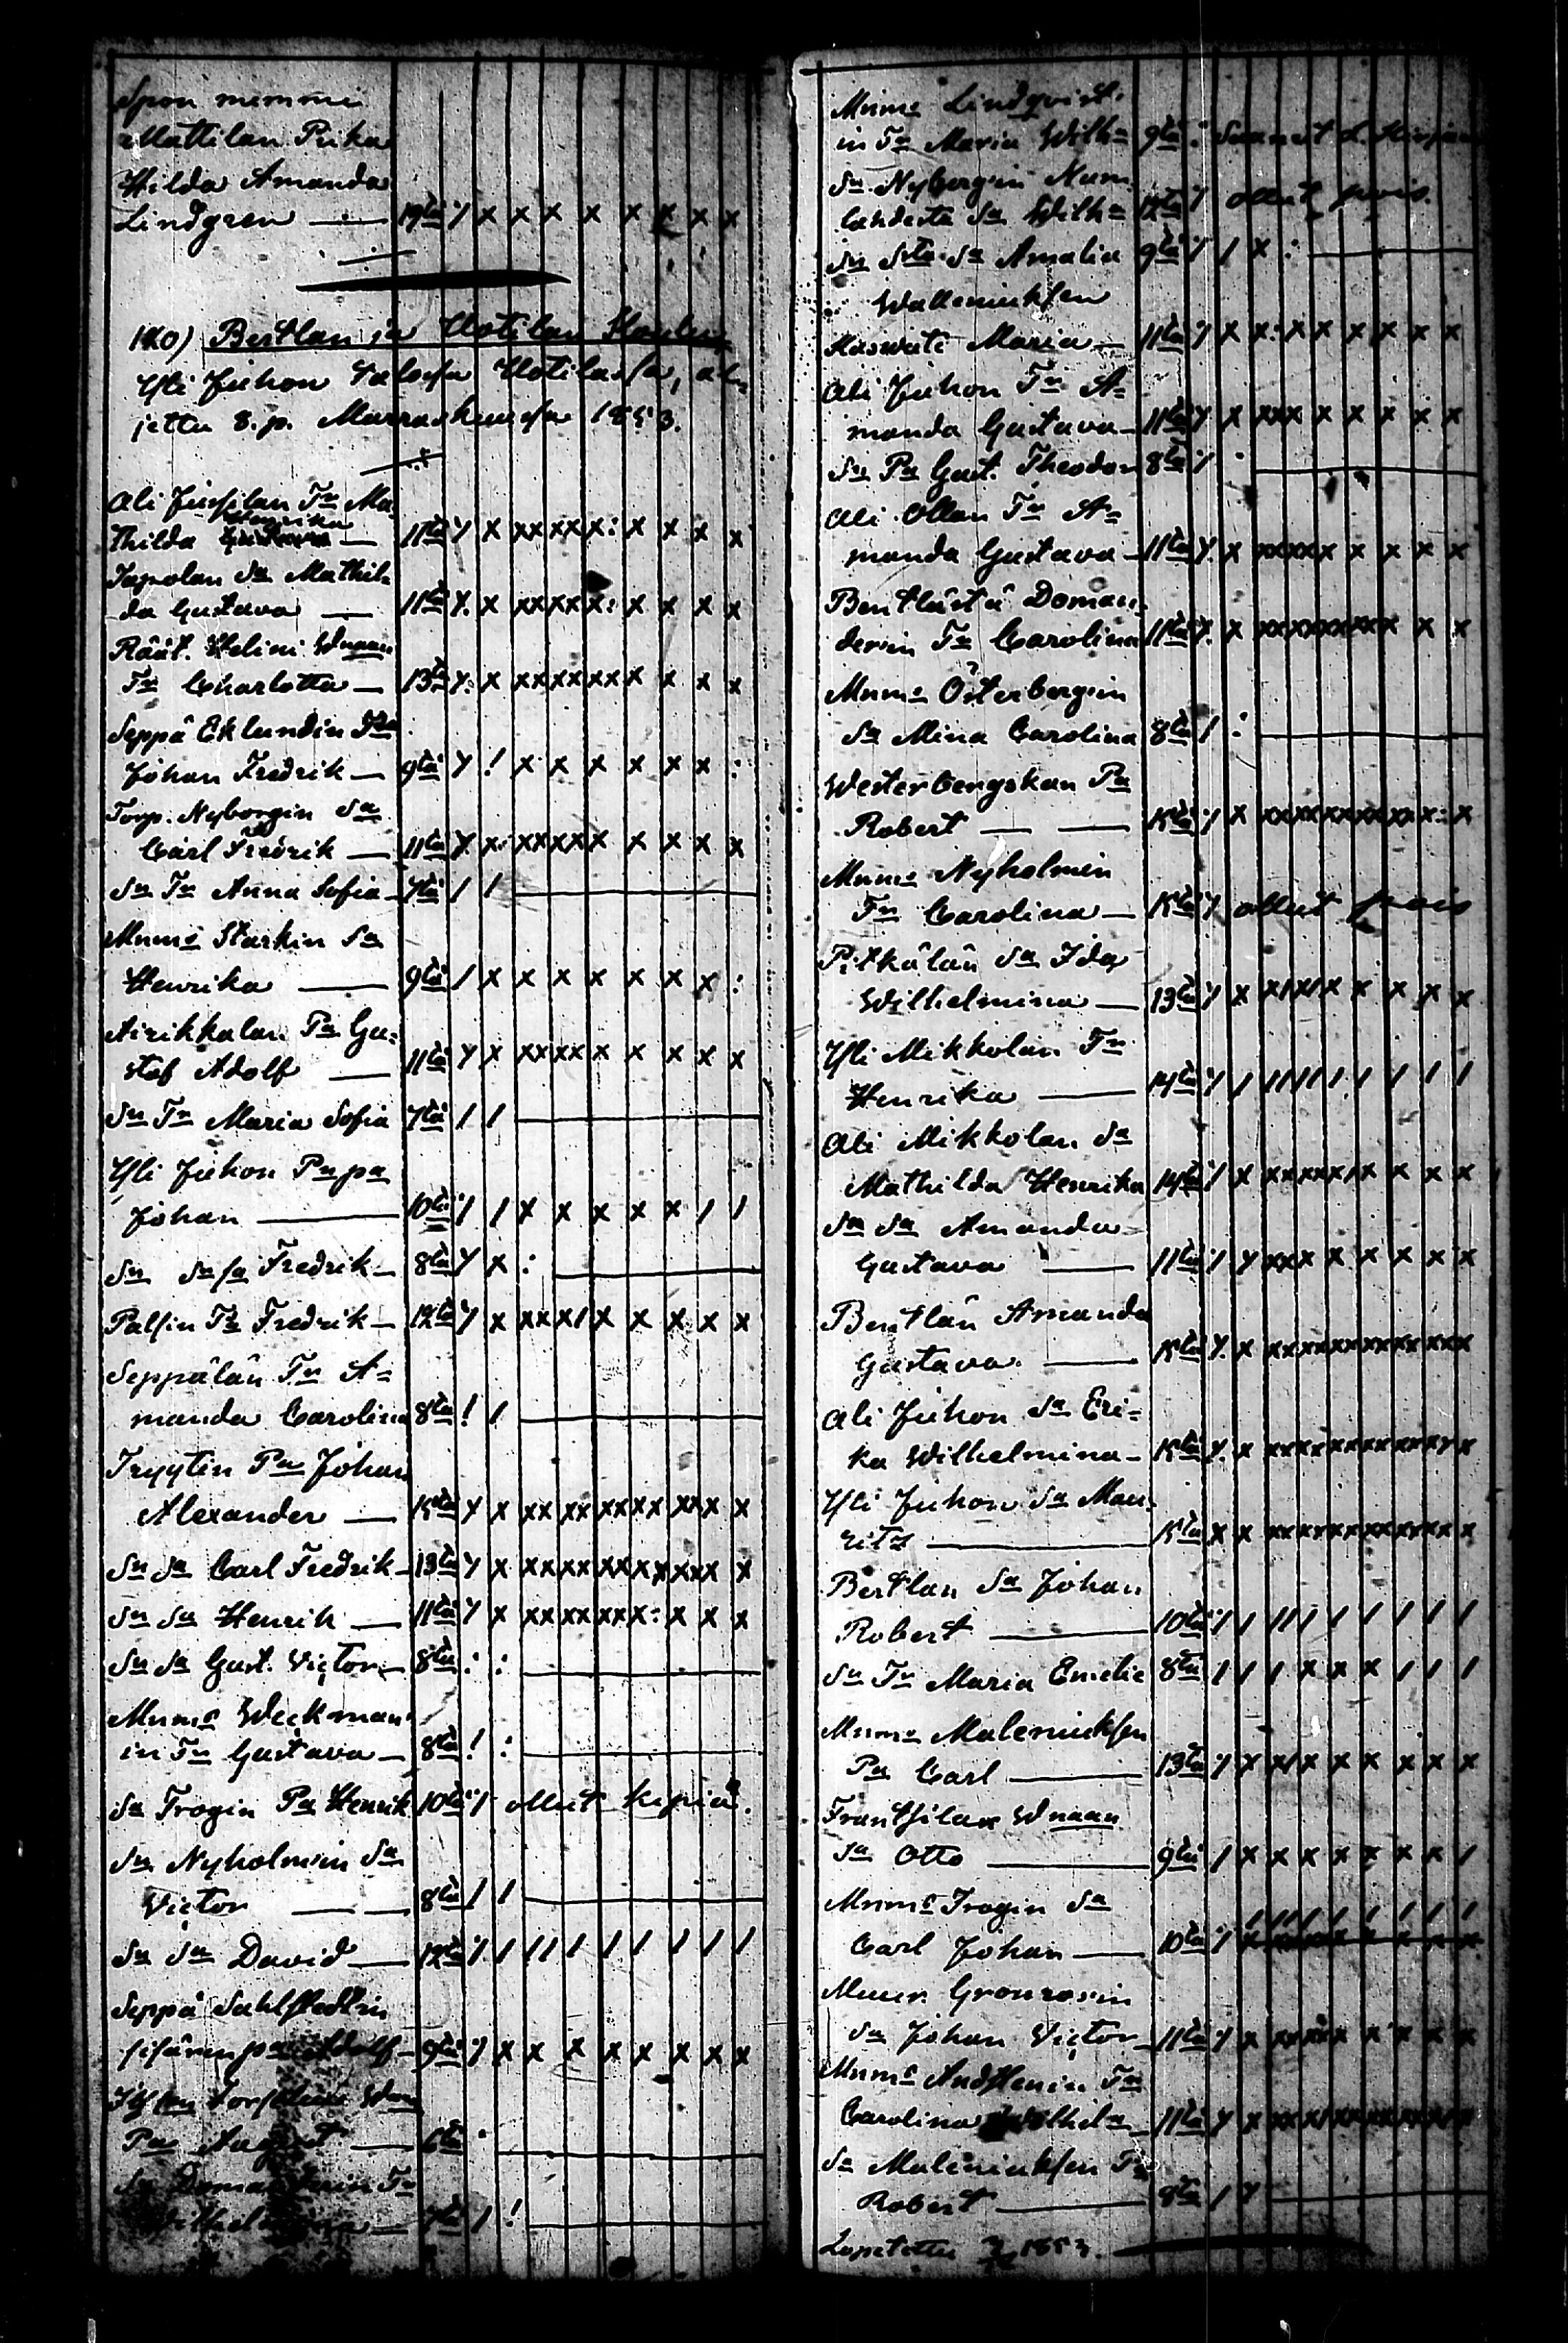 Spon memmi
Mattilan Piika
Hilda Amanda
Lindgren — 19ta Y x x x x x x x x
120) Bertlan ja Uotilan Koulu
Yli Juhon talossa Uotilassa, al-
jettu 8. p. Marraskuussa 1853.
Ali Jussilan Tr Ma-
Henrika
thilda — 11ta Y x xx xx x: x x x x
Tapolan Sa Mathil-
da Gustava — 11ta Y. x xx xx x: x x x x
Räät. Helini Wnaan
Tr Charlotta — 13ta Y. x xx xx xx x x x x
Seppä Eklundin Pa
Johan Fredrik — 9ta Y ! x x x x x x :
Torp. Nybergin Sa
Carl Fredrik — 11ta Y x. xx xx x x x x x
Sn Tr Anna Sofia — 7ta / /
Mnms Starkin Sa
Henrika — 9ta / x x x x x x x :
Airikkalan Pa Gu-
staf Adolf — 11ta Y x xx xx x x x x x
Sn Tr Maria Sofia 7ta / /
Yli Juhon Pnpa
Johan — 10ta Y / x x x x x / /
Sn Sa Fredrik — 8ta Y x :
Palsin Pa Fredrik — 12ta Y x xx x/ x x x x x
Seppälän Tr A-
manda Carolina 8ta ! /
Tryytin Pa Johan
Alexander — 15ta Y x xx xx xx xx xx x x
Sn Sa Carl Fredrik — 13ta Y x xx xx xx x x xxx x
Sn Sa Henrik — 11ta Y x xx xx xx x: x x x
Sn Sa Gust. Victor — 8ta : :
Mnms Weckman-
in Tr Gustava — 8ta ! :
Sn Trogin Pa Henrik 10ta Y ollut kipiä.
Sn Nyholmin Sa
Victor — 8ta / /
Sn Sa David — 12ta Y / // / / / / / /
Seppä Sahlstedtin
sisären pa Adolf — 9ta Y x x x x x x x x
Pa August — 6ta :
Sn Domanderin Tr
Wilhelmina — 7ta / !
Mnms Lindqvist-
in Tr Maria Wilh= 9ta :
Sn Nybergin Num
lahdesta Sa Wilh= 12ta Y ollut pois.
Sn Sta Sa Amalia 9ta Y / x :
Walleniuksen
Kaswati Maria — 11ta Y x x: x x x x x x
Ali Juhon Tr A-
manda Gustava — 11ta Y. x xxx x x x x x
Sn Pa Gust. Theodor 8ta Y :
Ali Ollan Tr A-
manda Gustava — 11ta Y. x xxxx x x x x x
Bentlästä Doman-
derin Tr Carolina 11ta Y. x xxxxxxxx x x x
Mnms Österbergin
Sa Mina Carolina 8ta / :
Westerbergskan Pa
Robert — — 15ta Y x xxxxxxxxxx x: x
Mnms Nyholmin
Tr Carolina — 15ta Y ollut pois
Pitkälän Sa Ida
Wilhelmina — 13ta Y x x/x/ x x x x x
Yli Mikkolan Tr
Henrika — 14ta Y / //// / / / / /
Ali Mikkolan Sa
Mathilda Henrika 14ta Y x xxxxx/x x x x x
Sn Sa Amanda
Gustava — 11ta Y Y xxx x x x x x x
Bentlän Amanda
Gustava — 15ta Y. x xxxxxxxxxxxxx
Ali Juhon Sa Eri-
ka Wilhelmina — 15ta Y. x xxxxxxxxxxxxx
Yli Juhon Sa Mau-
ritz — 15ta x x xxxxxxxxxxxx x
Bertlan Sa Johan
Robert — 10ta Y / // / / / / / /
Sn Tr Maria Emelie 8ta / / / x x x / / /
Mnms Maleniuksen
Pa Carl — 13ta Y x x/ x x x x x x
Franssilan Wnaan
Sa Otto — 9ta / x x x x x x x /
Mnms Trogin Sa
Carl Johan — 10ta Y / // / / / / / /
Muur. Grönrosin
Sa Johan Victor — 11ta Y x xxxx x x x x x
Mnms Andstenin Tr
Carolina Wilhel= 11ta Y x
Sn Maleniuksen Pa
Robert — 8ta / Y
Lopetettu 1853.